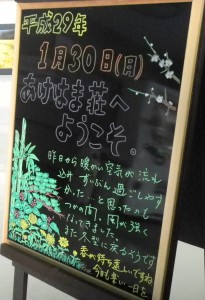 平成29年
1月30日(月)
あけはま荘へ
ようこそ。
昨日から暖かい空気が流れ
込み ずいぶん過ごしやす
かった…と思ったのも
つかの間、風が強く
なってきました。
また冬型に戻るそうです
春が待ち遠しいですね
今日も楽しい一日を